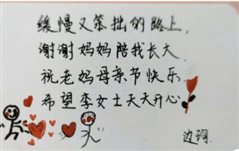 缓慢又笨拙的路上，
谢谢妈妈陪我长大
祝老妈母亲节快乐
希望李女士天天开心